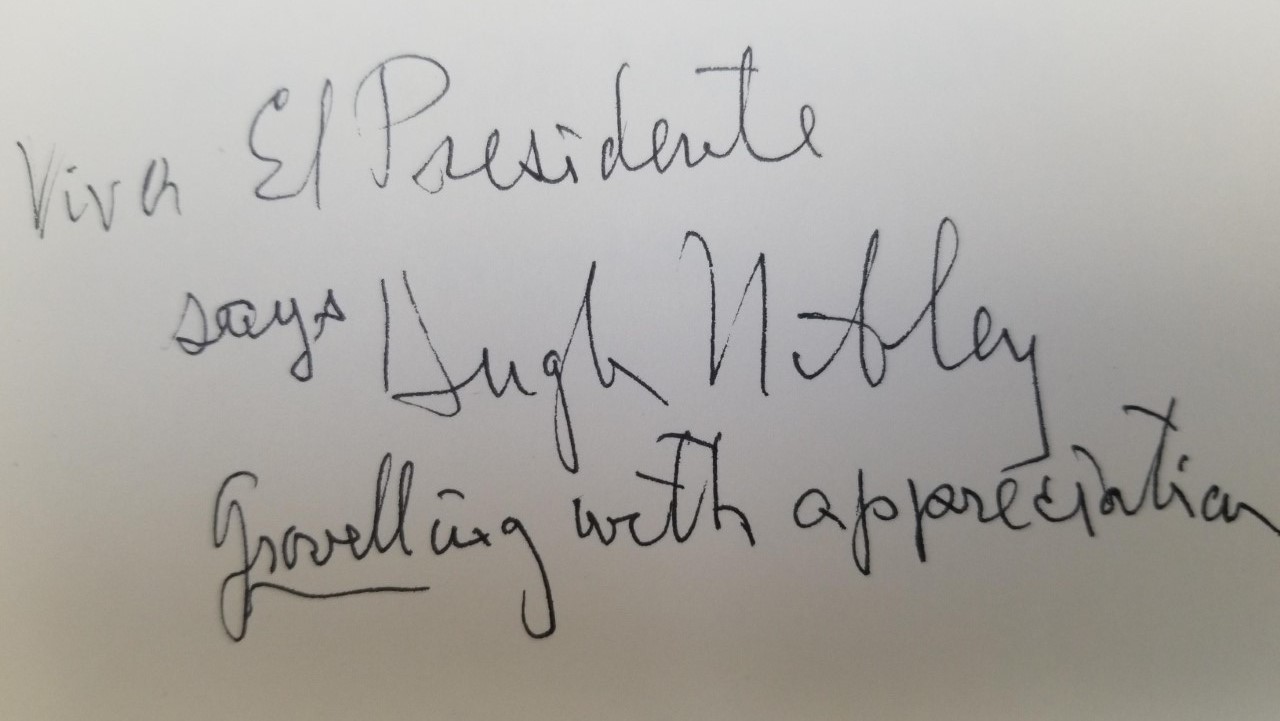 Viva El Presidente
says Hugh Nibley
Grovelling with appreciation